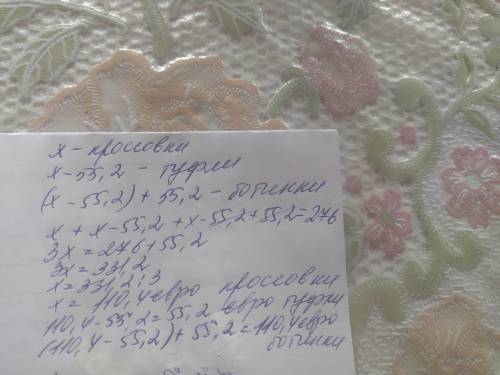 x - кроссовки
x - 55,2 - туфли
(x - 55,2) + 55,2 - ботинки
x + x - 55,2 + x - 55,2 + 55,2 = 276
3x = 276 + 55,2
3x = 331,2
x = 331,2 : 3
x = 110,4 евро кроссовки
110,4 - 55,2 = 55,2 евро туфли
(110,4 - 55,2) + 55,2 = 110,4 евро
ботинки